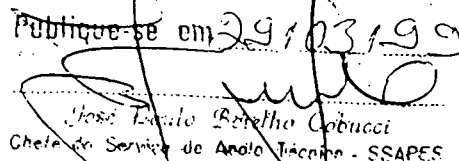 Publique-se em 29/03/99
José Paulo Botelho Cobucci
Chefe do Serviço de Apoio Técnico - SSAPES